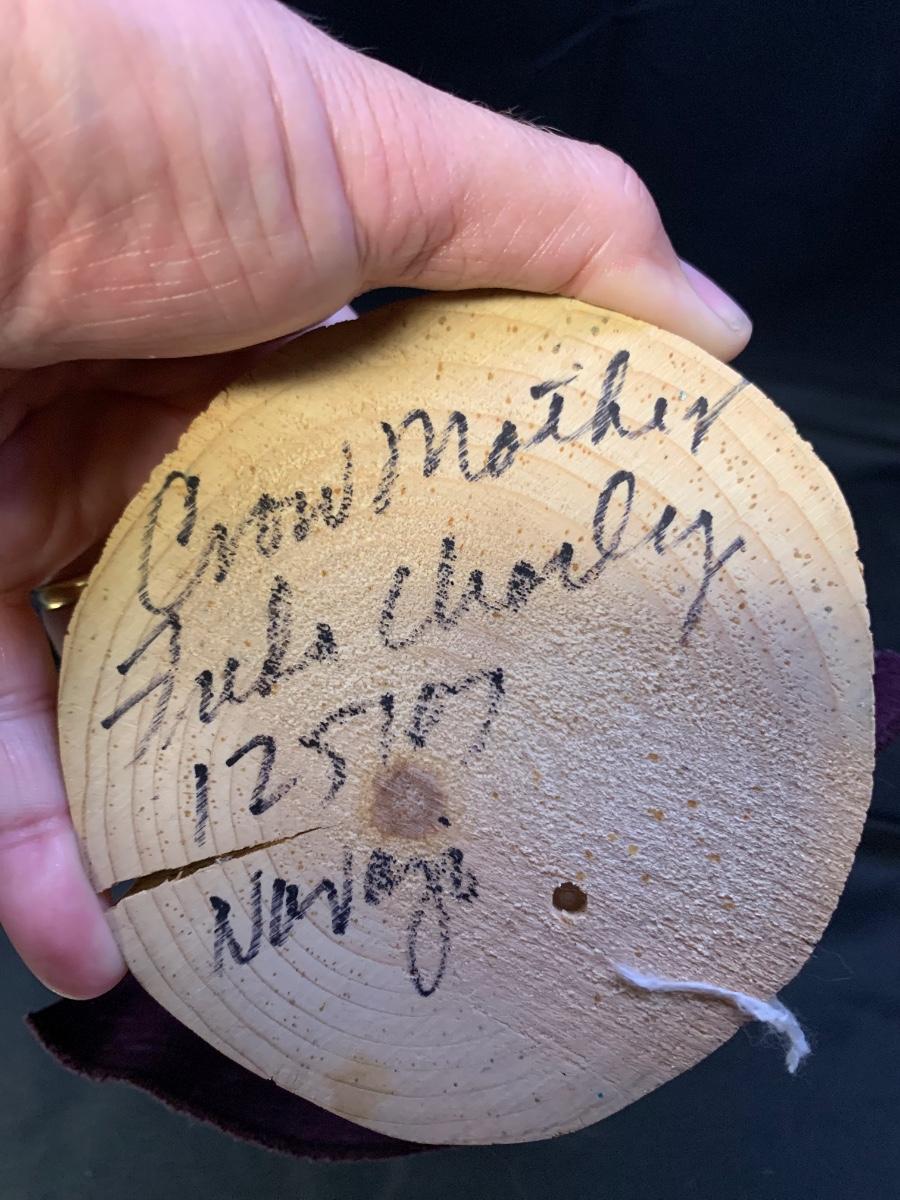 Crow Mother
Charley
125107
Navajo